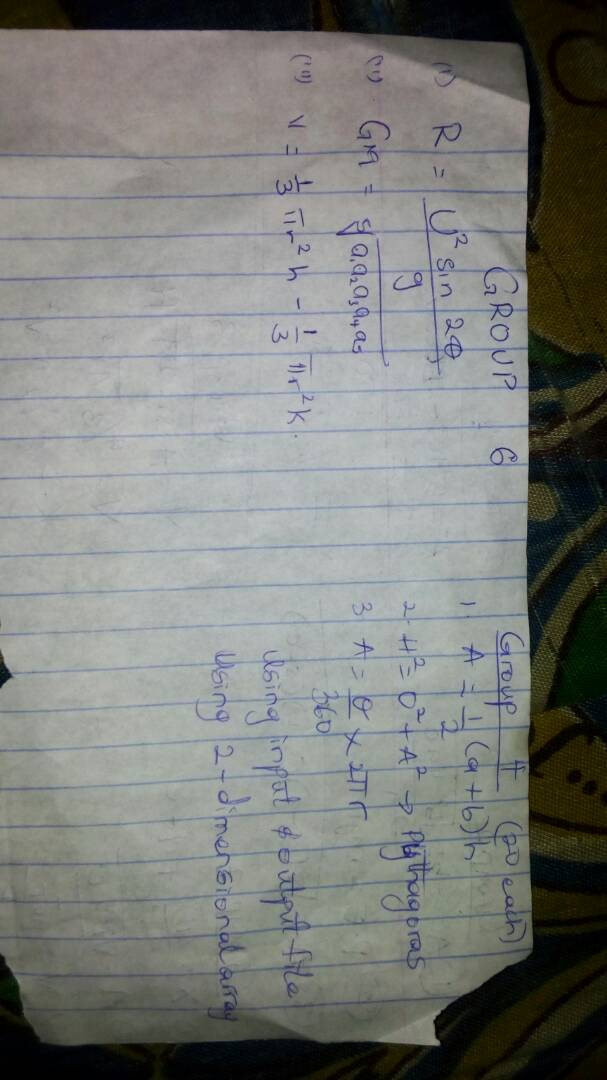 GROUP 6
(i) R = U² sin 2θ / g
(ii) GM = ⁵√a₁a₂a₃a₄a₅
(iii) V = 1/3 πr²h - 1/3 πr²k.
Group 4 (20 each)
1. A = 1/2 (a + b)h
2. H² = O² + A² → Pythagoras
3 A = θ/360 × 2πr
Using input & output file
Using 2-dimensional array